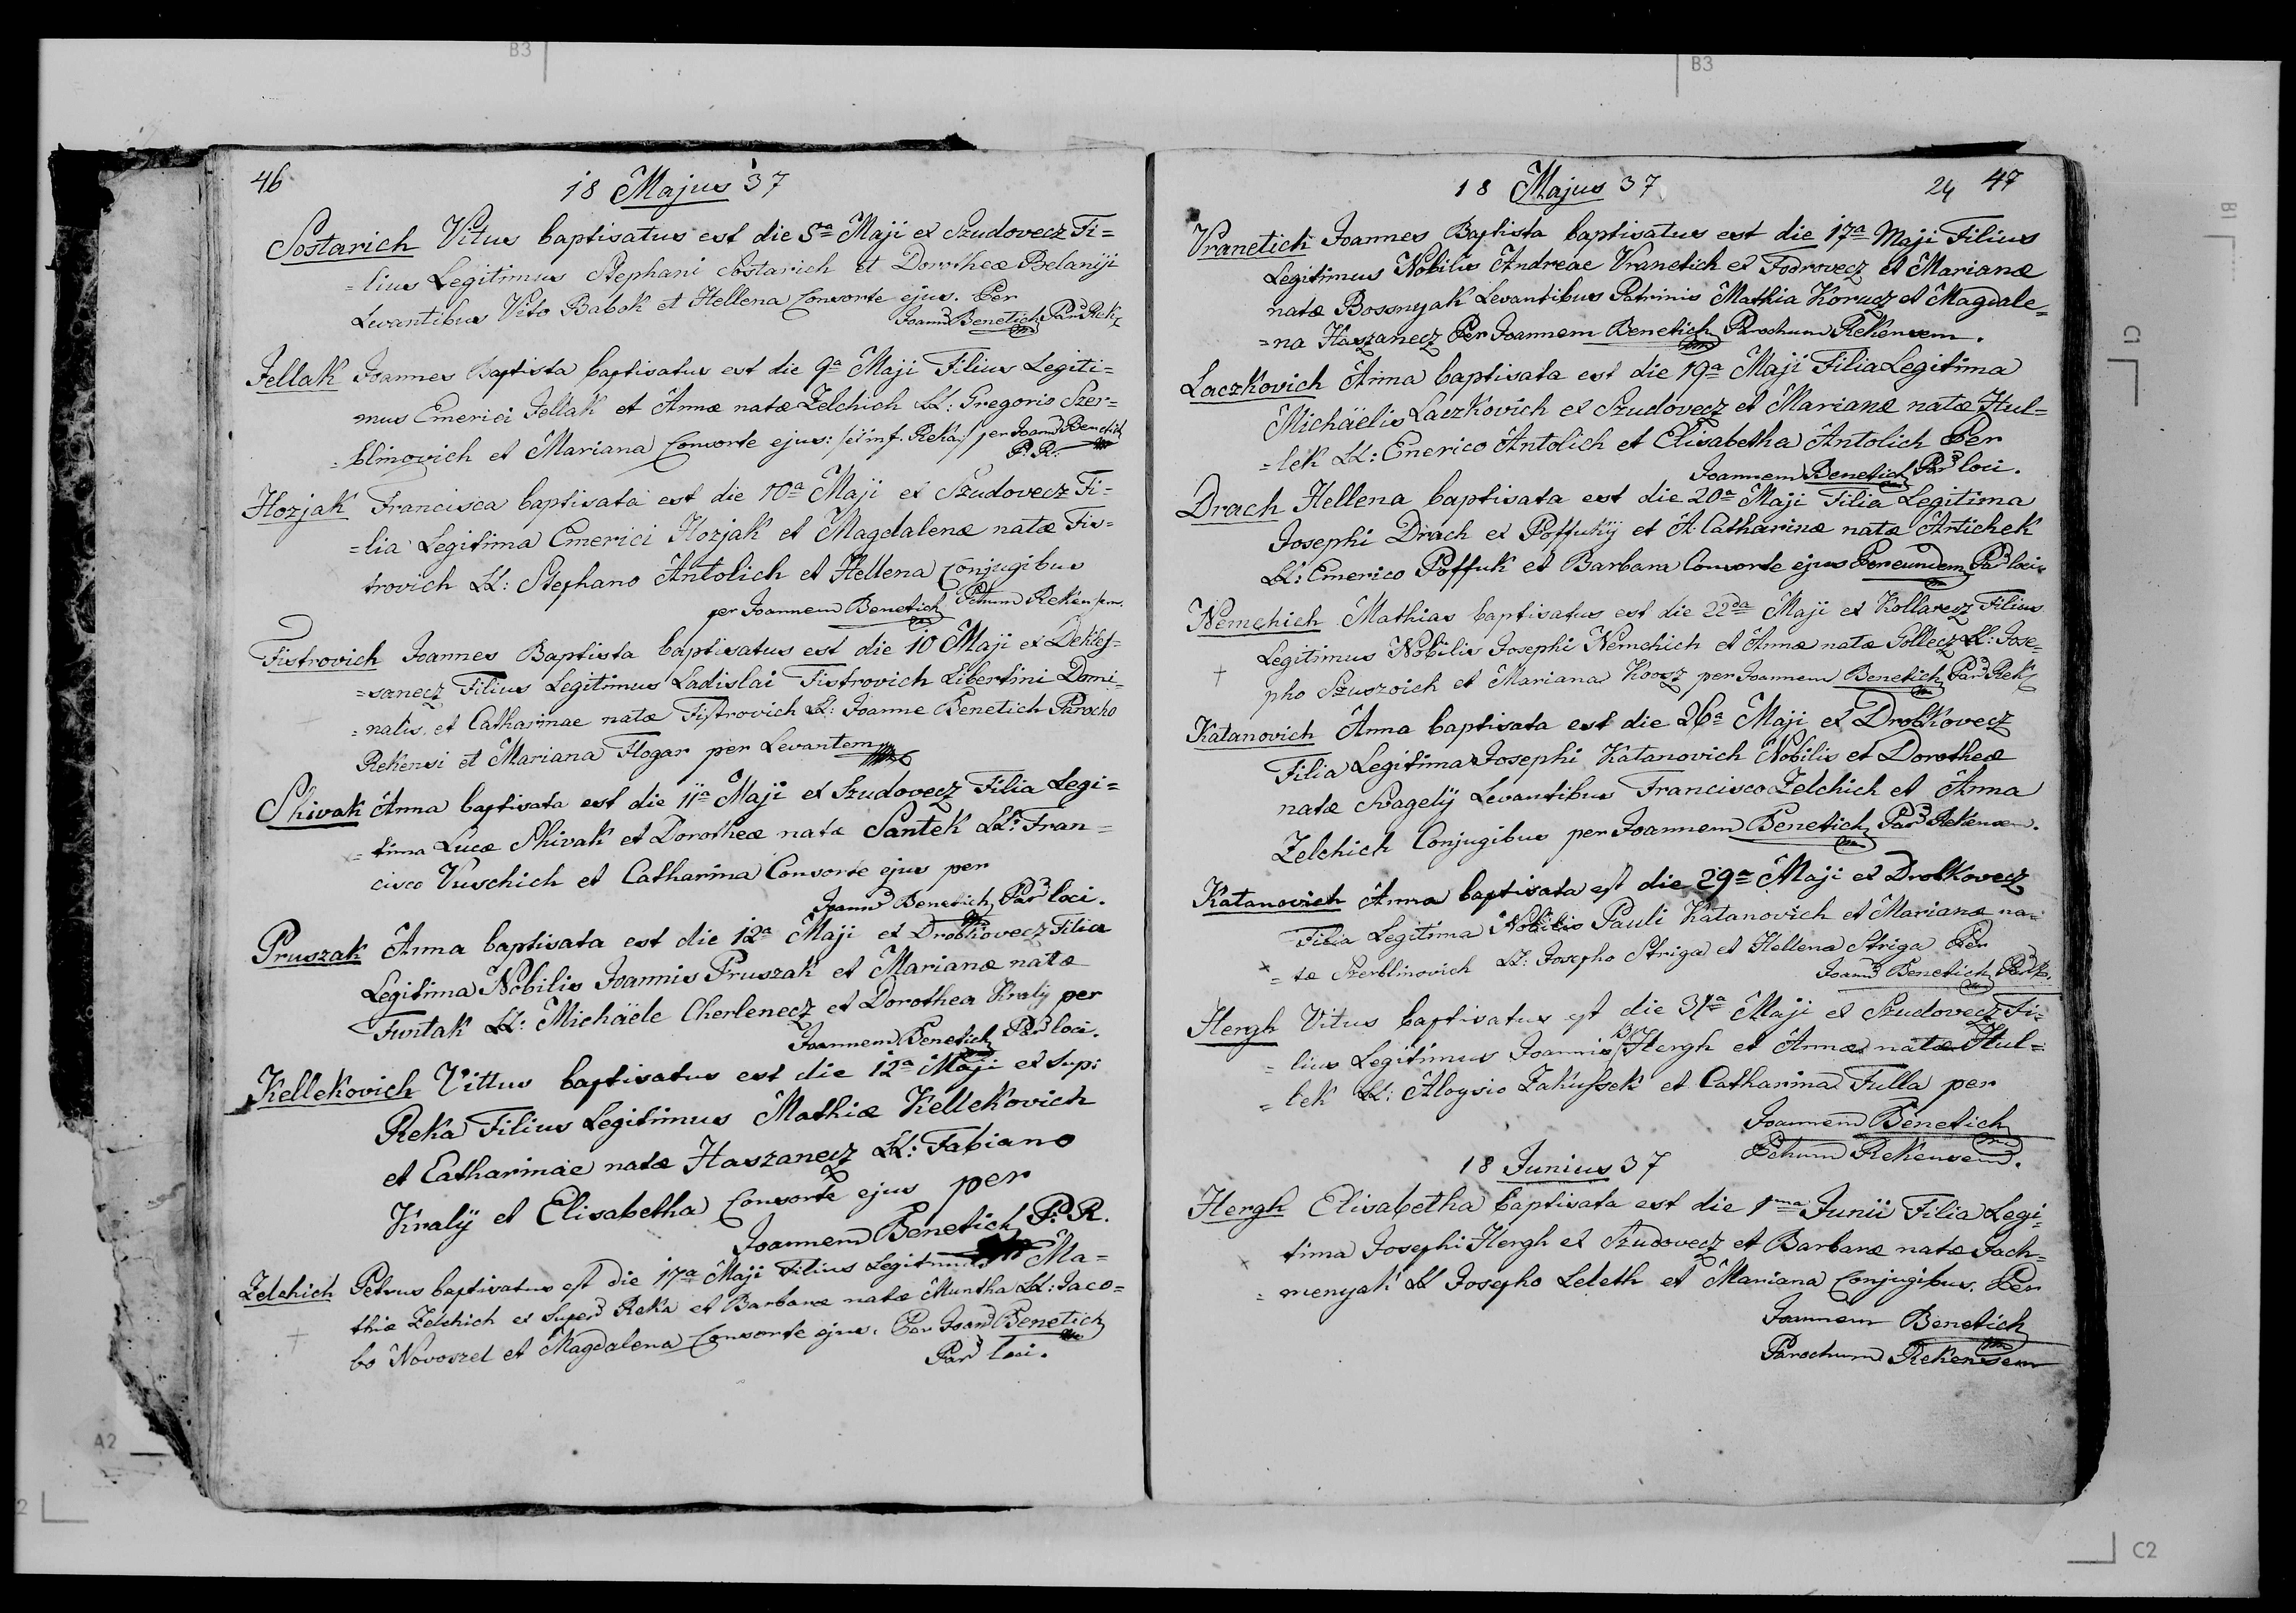 B3
B3
46
18 Majus 37
Sostarich Vitus baptisatus est die 5a Maji ex Szudovecz Fi=
=lius Legitimus Stephani Sostarich et Dorotheæ Belaniji
Levantibus Vito Babok et Hellena Consorte ejus. Per
Joann Benetich Par Rek
Jellak Joannes Baptista baptisatus est die 9a Maji Filius Legiti=
mus Emerici Jellak et Annæ natæ Zelchich LL: Gregorio Szer=
=blinovich et Mariana Consorte ejus: /ex inf. Reka:/ per Joann Benetich
P. R.
Hozjak Francisca baptisata est die 10a Maji ex Szudovecz Fi=
=lia Legitima Emerici Hozjak et Magdalenæ natæ Fis=
trovich LL: Stephano Antolich et Hellena Conjugibus
per Joannem Benetich Pchum Rekensem.
Fistrovich Joannes Baptista baptisatus est die 10 Maji ex
=sanecz Filius Legitimus Ladislai Fistrovich Libertini Domi=
=nalis, et Catharinae natæ Fistrovich LL: Joanne Benetich Parocho
Rekensi et Mariana Flogar per Levantem
Shivak Anna baptisata est die 11a Maji ex Szudovecz Filia Legi=
=tima Lucæ Shivak et Dorotheæ natæ Santek LL: Fran=
cisco Vuschich et Catharina Consorte ejus per
Joann Benetich Par loci.
Pruszak Anna baptisata est die 12a Maji ex Drobkovecz Filia
Legitima Nobilis Joannis Pruszak et Marianæ natæ
Funtak LL: Michäele Cherlenecz et Dorothea Kralÿ per
Joannem Benetich Par loci.
Kellekovich Vittus baptisatus est die 12a Maji ex Sup:
Reka Filius Legitimus Mathiæ Kellekovich
et Catharinae natæ Haszanecz LL: Fabiano
Kralÿ et Elisabetha Consorte ejus per
Joannem Benetich P. R.
Zelchich Petrus baptisatus est die 17a Maji Filius Legitimus Ma=
thiæ Zelchich ex Super Reka et Barbaræ natæ Muntha LL: Jaco=
bo Novoszel et Magdalena Consorte ejus. Per Joan Benetich
Par loci.
18 Majus 37
24 47
Vranetich Joannes Baptista baptisatus est die 17a Maji Filius
Legitimus Nobilis Andreae Vranetich ex Fodrovecz et Marianæ
natæ Bossnyak Levantibus Patrinis Mathia Korucz et Magdale=
=na Haszanecz Per Joannem Benetich Parochum Rekensem.
Laczkovich Anna baptisata est die 19a Maji Filia Legitima
Michäelis Laczkovich ex Szudovecz et Marianæ natæ Hul=
=lek LL: Emerico Antolich et Elisabetha Antolich Per
Joannem Benetich Par loci.
Drach Hellena baptisata est die 20a Maji Filia Legitima
Josephi Drach ex Poffukÿ et A Catharinæ natæ Antichek
LL: Emerico Poffuk et Barbara Consorte ejus Per eundem Par loci.
Nemchich Mathias baptisatus est die 22da Maji ex Kollarecz Filius
Legitimus Nobilis Josephi Nemchich et Annæ natæ Gollecz LL: Jose=
pho et Mariana per Joannem Benetich Par Rek
Katanovich Anna baptisata est die 26a Maji ex Drobkovecz
Filia Legitima Josephi Katanovich Nobilis et Dorotheæ
natæ Svagelÿ Levantibus Francisco Zelchich et Anna
Zelchich Conjugibus per Joannem Benetich Par Rekensem.
Katanovich Anna baptisata est die 29a Maji ex Drobkovecz
Filia Legitima Nobilis Pauli Katanovich et Marianæ na=
=tæ Szerblinovich LL: Josepho Striga et Hellena Striga Per
Joann Benetich Par R.
Hergh Vitus baptisatus est die 31a Maji ex Szudovecz Fi=
=lius Legitimus Joannis Hergh et Annæ natæ Hul=
=lek LL: Aloysio Zakussek et Catharina Fulla per
Joannem Benetich
Pchum Rekensem.
18 Junius 37
Hergh Elisabetha baptisata est die 1ma Junii Filia Legi=
tima Josephi Hergh ex Szudovecz et Barbaræ natæ Jach=
=menyak LL Josepho Leleth et Mariana Conjugibus. Per
Joannem Benetich
Parochum Rekensem
B1
C1
A2
2
C2